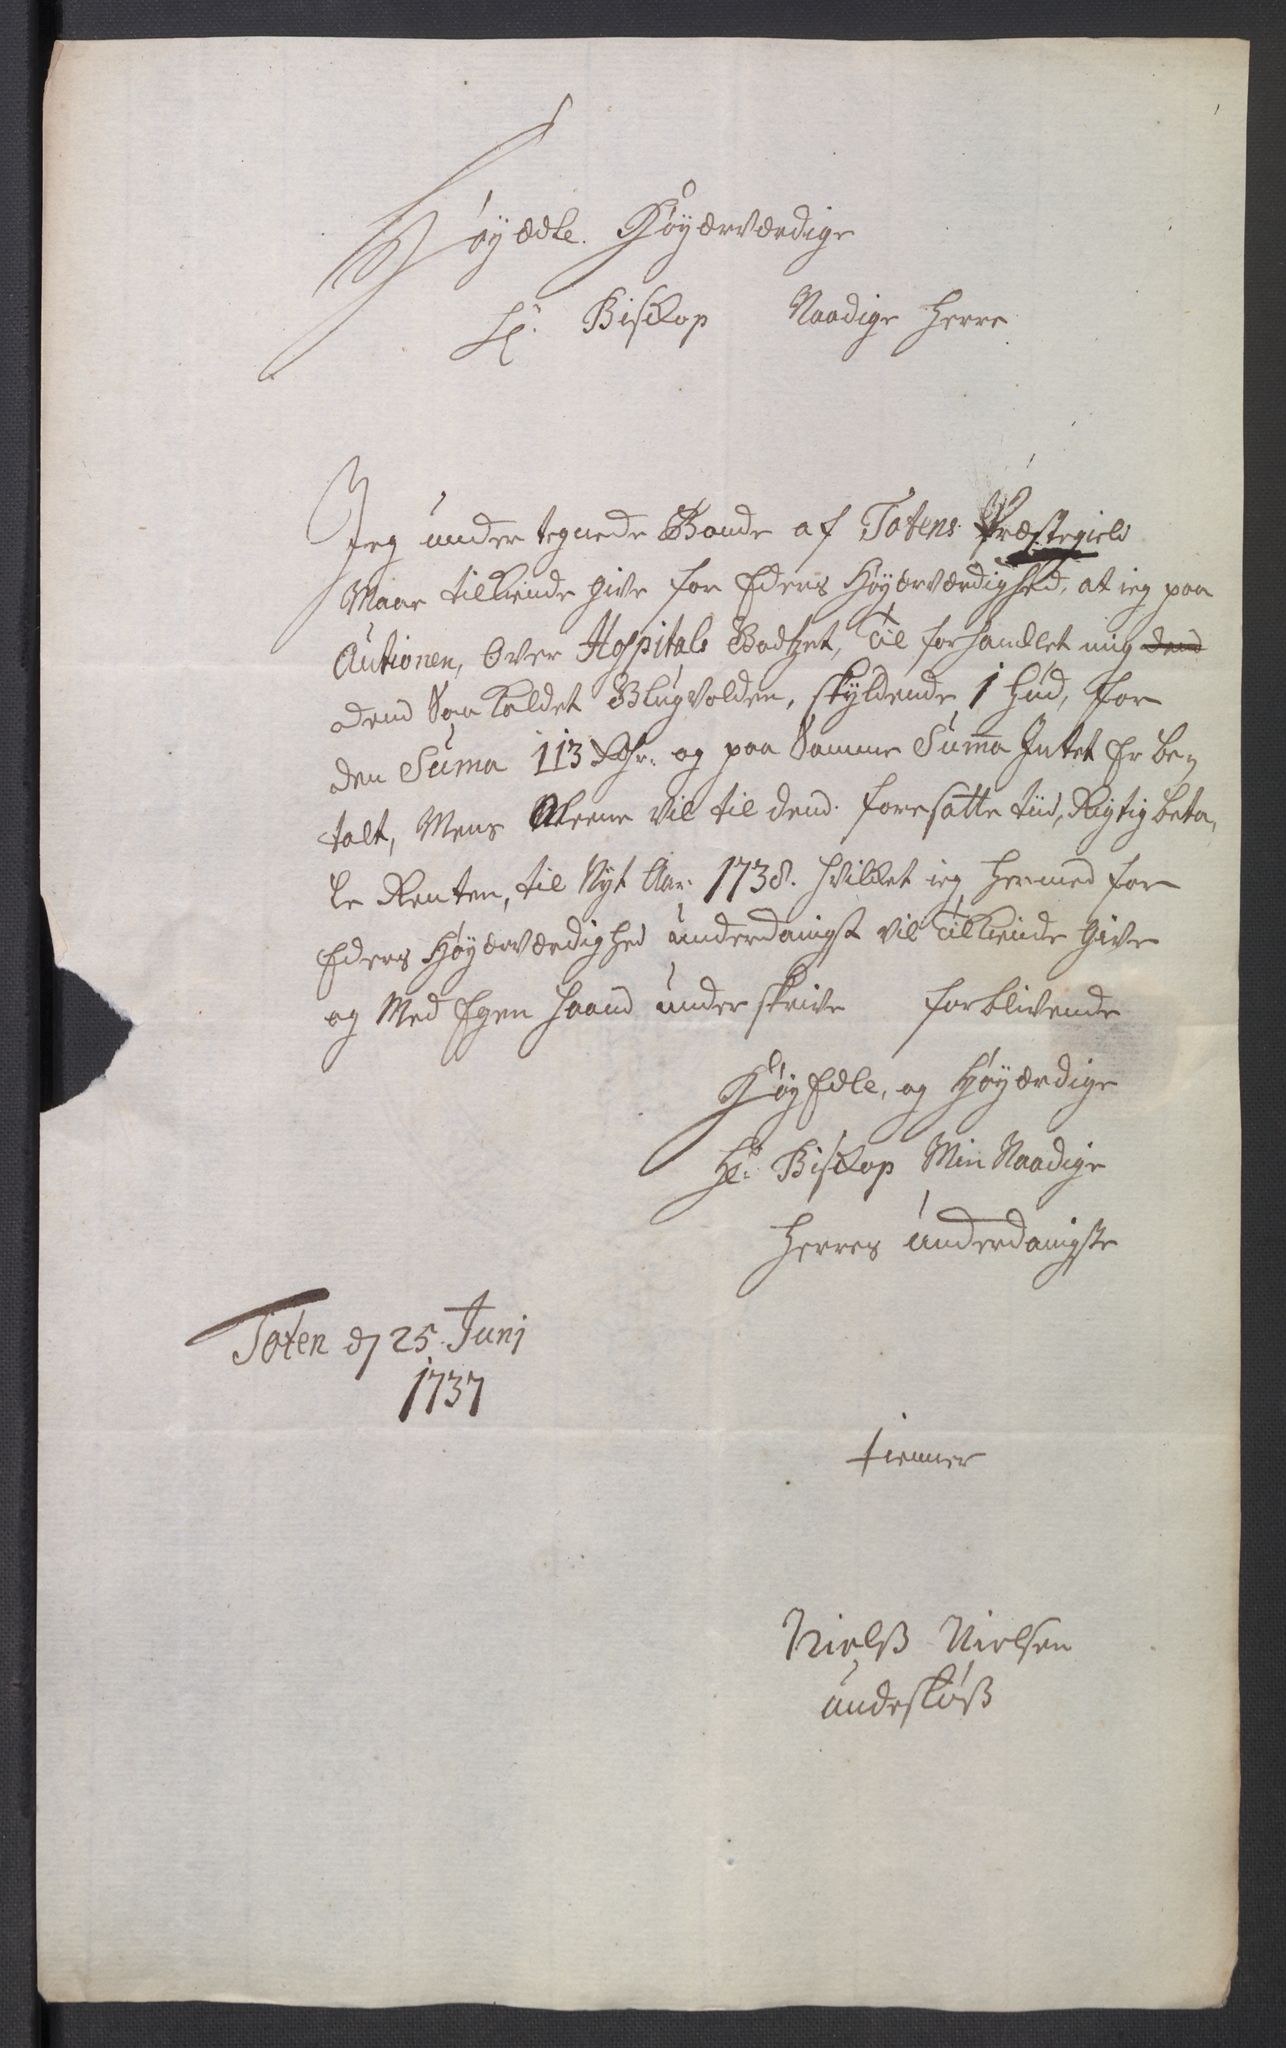 Høyædle. Høyærværdige
Hr. Biskop Naadige Herre
Jeg under tegnede Bonde af Totens Præstegield
Maae tilkiende give for Eders Høyærværdighed, at ieg paa
Auctionen, over Hospitals Godtzet, Til forhandlet mig dend
dend Saa kaldet Blugvolden, skyldende 1 Hud, for
den Suma 113 Rdr. og paa Samme Suma Intet Er be-
talt, Mens Aleene vil til dend foresatte tiid, Rigtig beta-
le Renten, til Nyt Aar 1738. hvilket ieg hermed for
Eders Høyærværdighed underdanigst vil Tilkiende Give
og Med Egen haand under skrive forblivende
HøyEdle, og Høyærdige
Hr. Biskop Min Naadige
Herres underdanigste
Toten d 25 Junj
1737
tienner
Nielß Nielsen